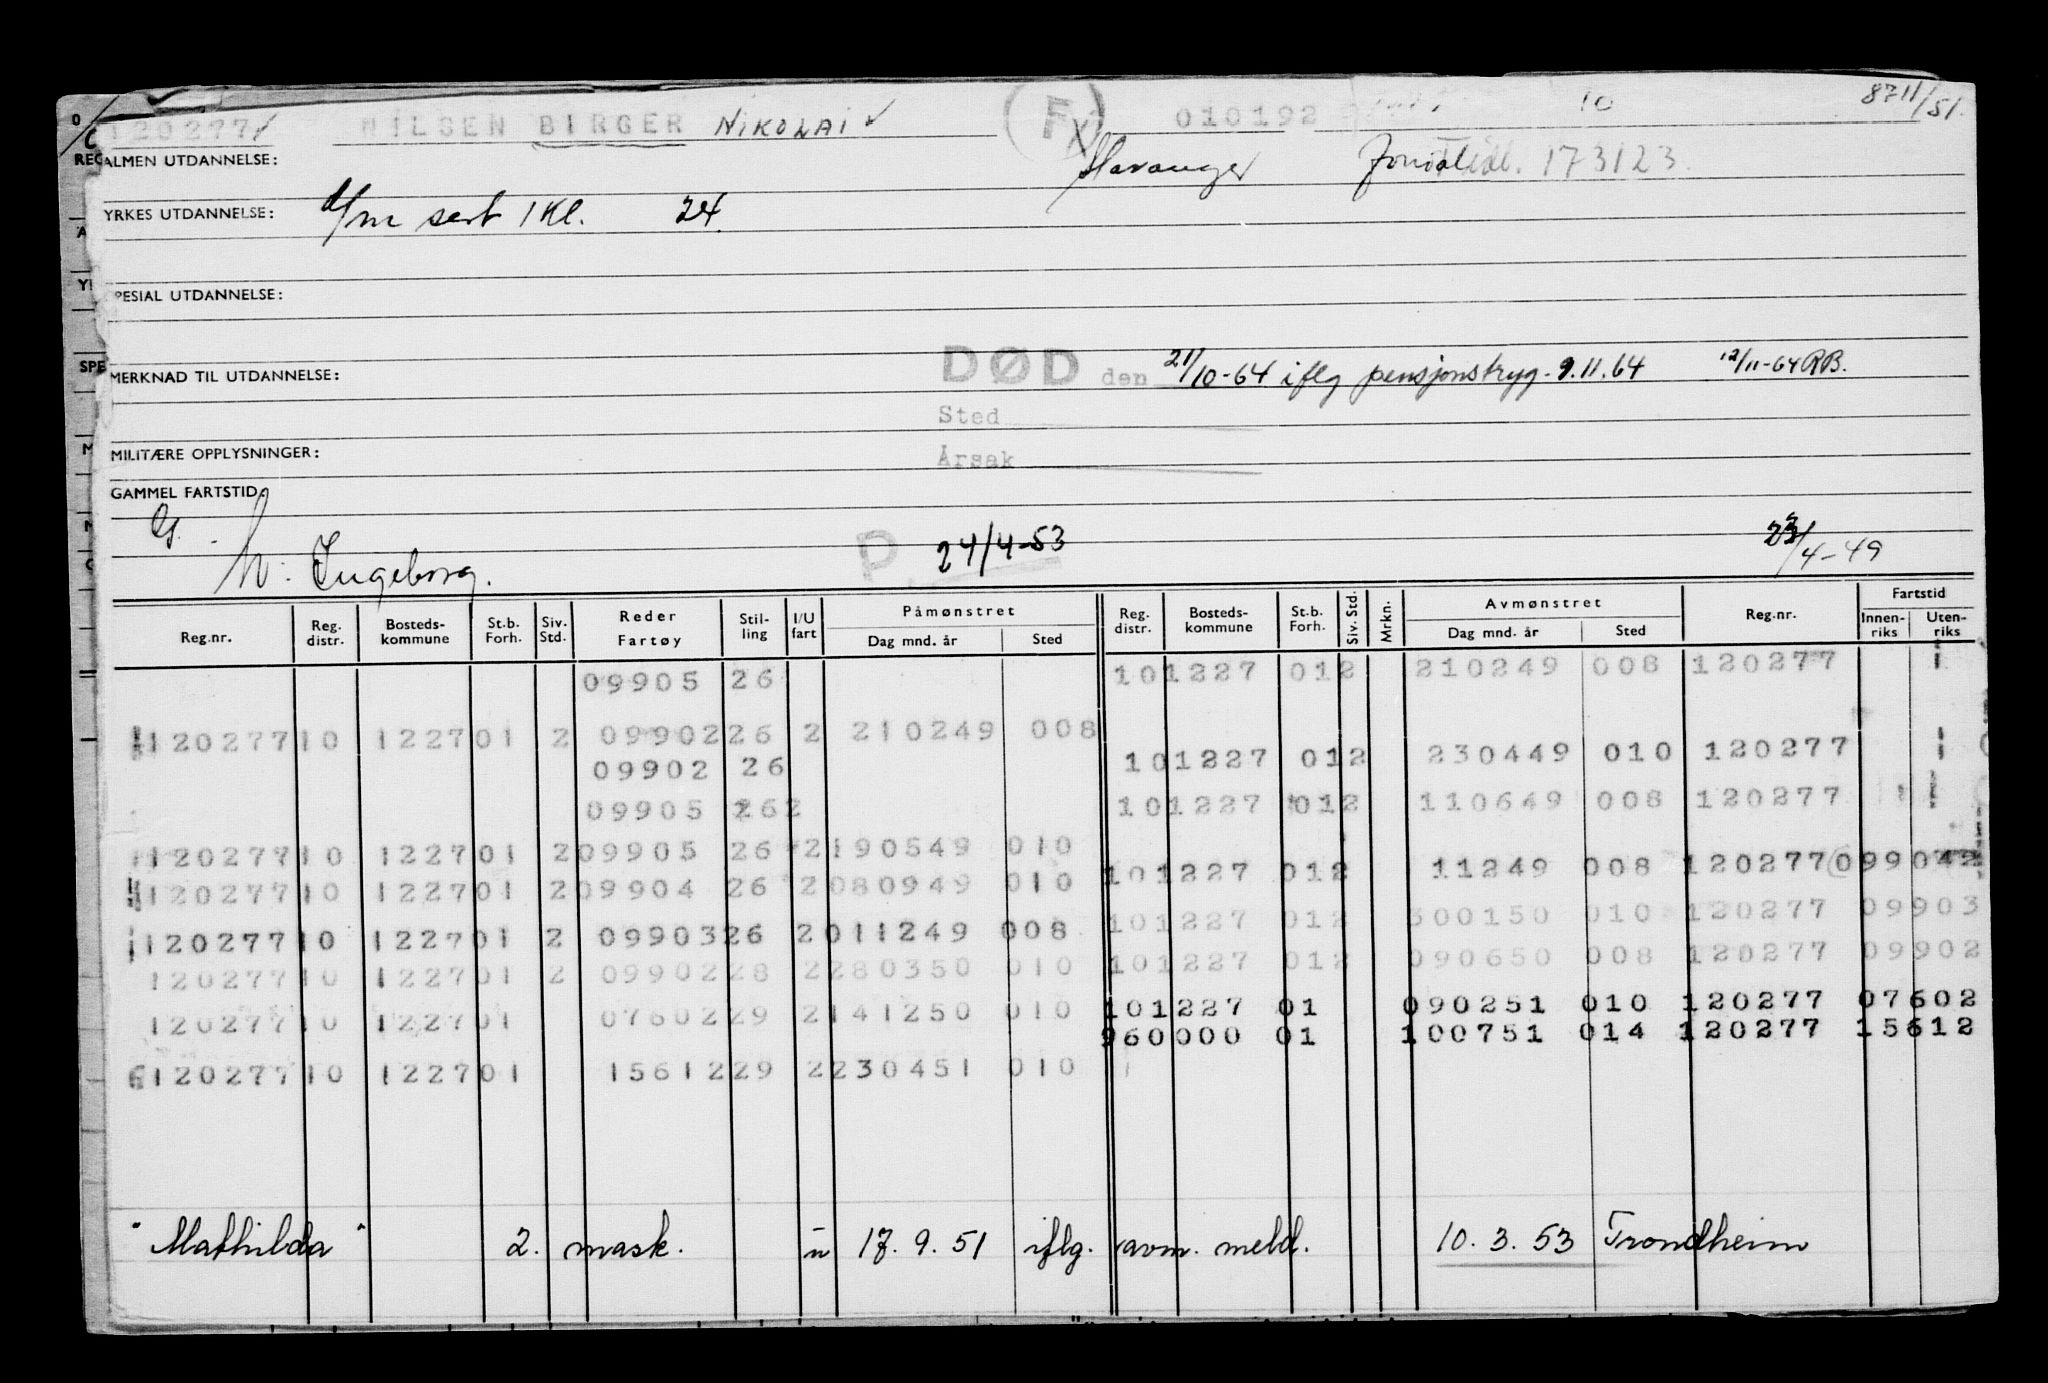 120277 NILSEN BIRGER NIKOLAI ✓ F 010192 10 8711/51.
ALMEN UTDANNELSE: Stavanger 173123.
YRKES UTDANNELSE: sert 1 Kl. 24.
SPESIAL UTDANNELSE:
MERKNAD TIL UTDANNELSE: DØD den 21/10-64 iflg pensjonstryg. 9.11.64 12/11-64 RB.
Sted
MILITÆRE OPPLYSNINGER: Årsak
GAMMEL FARTSTID:
G. P. 24/4-53 23/4-49
h: Ingeborg.
Reg.nr. Reg. distr. Bosteds-kommune St.b. Forh. Siv. Std. Reder Fartøy Stil-ling I/U fart Påmønstret Dag mnd. år Sted Reg. distr. Bosteds-kommune St.b. Forh. Siv. Std. Mrkn. Avmønstret Dag mnd. år Sted Reg.nr. Fartstid Innen-riks Uten-riks
09905 26 101227 012 210249 008 120277
120277 10 1227 01 2 09902 26 2 210249 008
09902 26 101227 012 230449 010 120277
09905 26 2 101227 012 110649 008 120277
120277 10 1227 01 2 09905 26 2 190549 010
101227 012 11249 008 120277 09904 2
120277 10 1227 01 2 09904 26 2 080949 010
101227 012 300150 010 120277 09903
120277 10 1227 01 2 09903 26 2 011249 008
101227 012 090650 008 120277 09902
120277 10 1227 01 2 09902 28 2 280350 010
101227 01 090251 010 120277 07602
120277 10 1227 01 07602 29 2 141250 010
960000 01 100751 014 120277 15612
6 120277 10 1227 01 15612 29 2 230451 010
"Mathilda" 2. mask. u 17.9.51 iflg. avm. meld. 10.3.53 Trondheim